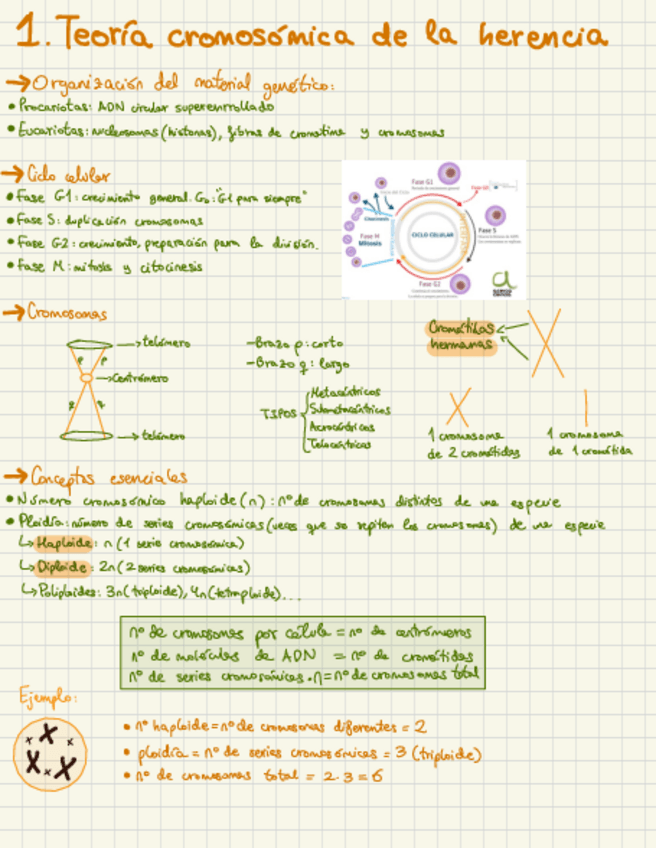 1. Teoría cromosómica de la herencia
→ Organización del material genético:
• Procariotas: ADN circular superenrollado
• Eucariotas: nucleosomas (histonas), fibras de cromatina y cromosomas
→ Ciclo celular
• Fase G1: crecimiento general. G₀: "G1 para siempre"
• Fase S: duplicación cromosomas
• Fase G2: crecimiento, preparación para la división.
• Fase M: mitosis y citocinesis
Fase G1
Fase G0
Citocinesis
Fase M
Mitosis
CICLO CELULAR
Fase S
Fase G2
→ Cromosomas
→ telómero
P P
→ Centrómero
q q
→ telómero
- Brazo p: corto
- Brazo q: largo
TIPOS
Metacéntricos
Submetacéntricos
Acrocéntricos
Telocéntricos
Cromátidas
hermanas
1 cromosoma
de 2 cromátidas
1 cromosoma
de 1 cromátida
→ Conceptos esenciales
• Número cromosómico haploide (n): nº de cromosomas distintos de una especie
• Ploidía: número de series cromosómicas (veces que se repiten los cromosomas) de una especie
↳ Haploide: n (1 serie cromosómica)
↳ Diploide: 2n (2 series cromosómicas)
↳ Poliploides: 3n (triploide), 4n (tetraploide)...
nº de cromosomas por célula = nº de centrómeros
nº de moléculas de ADN = nº de cromátidas
nº de series cromosómicas . n = nº de cromosomas total
Ejemplo:
• nº haploide = nº de cromosomas diferentes = 2
• ploidía = nº de series cromosómicas = 3 (triploide)
• nº de cromosomas total = 2.3 = 6